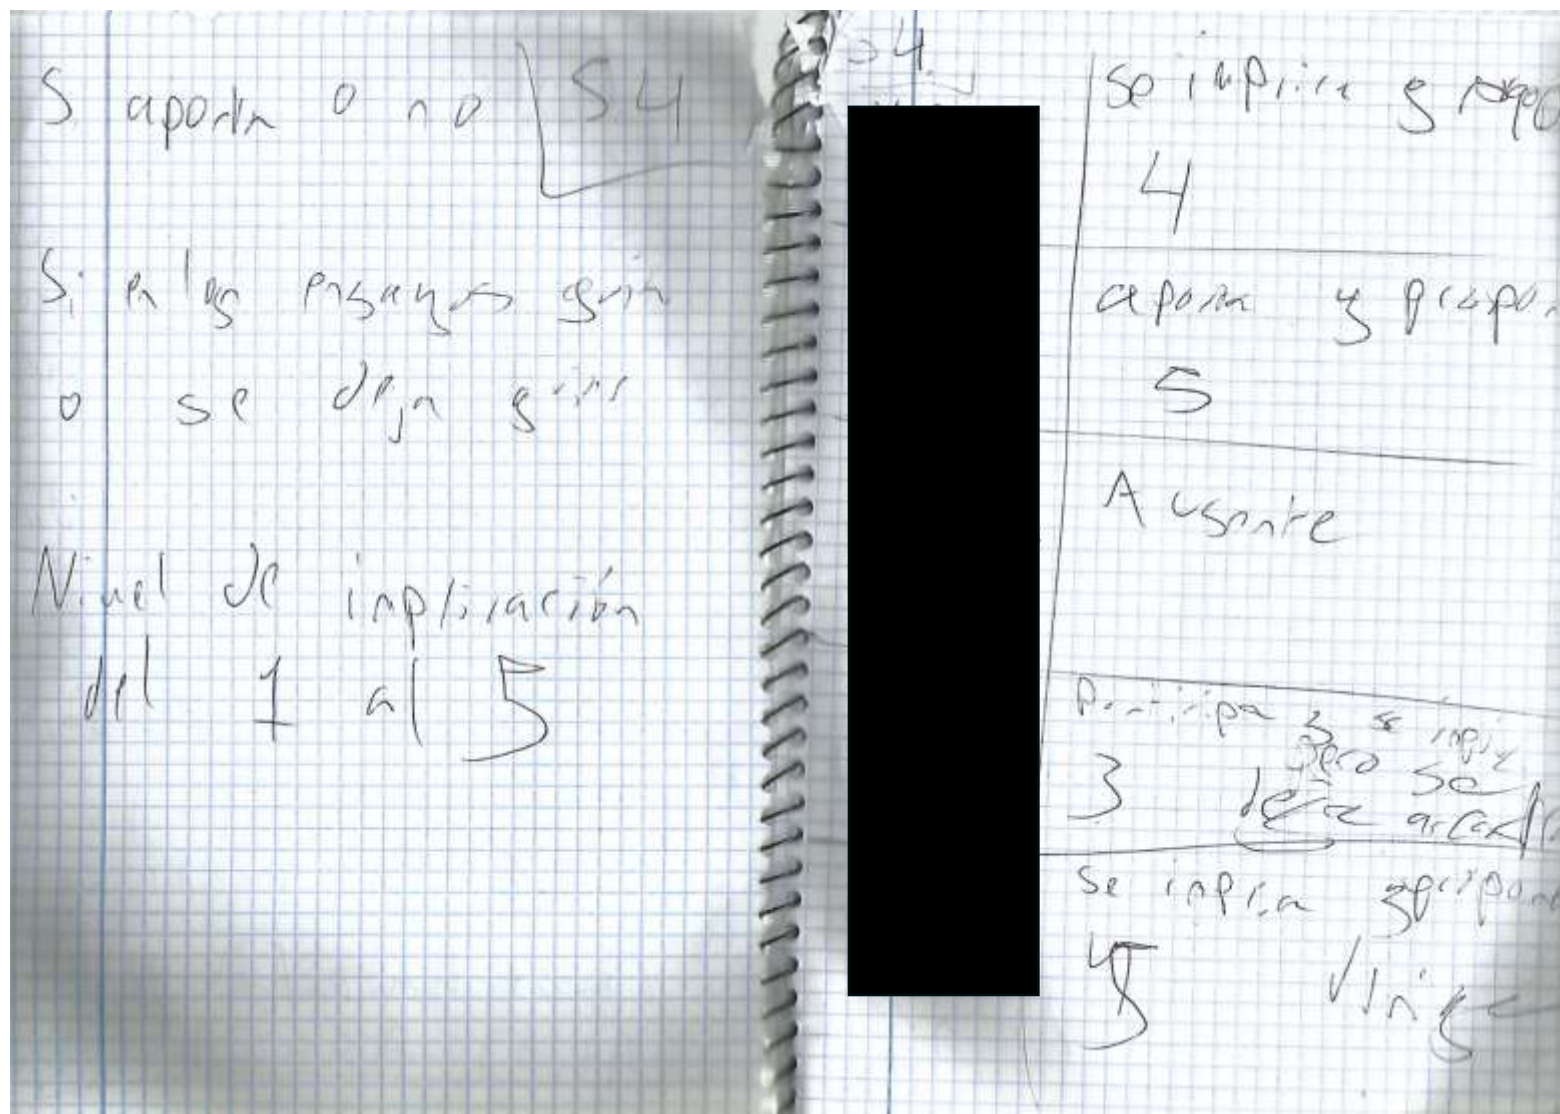 S aporta o no S4
Si en los ensayos guia
o se deja guiar
Nivel de implicación
del 1 al 5
S4
se implica y
4
aporta y propon
5
Ausente
Participa y se implic
pero se
3 deja
se implica y propone
5 dirige